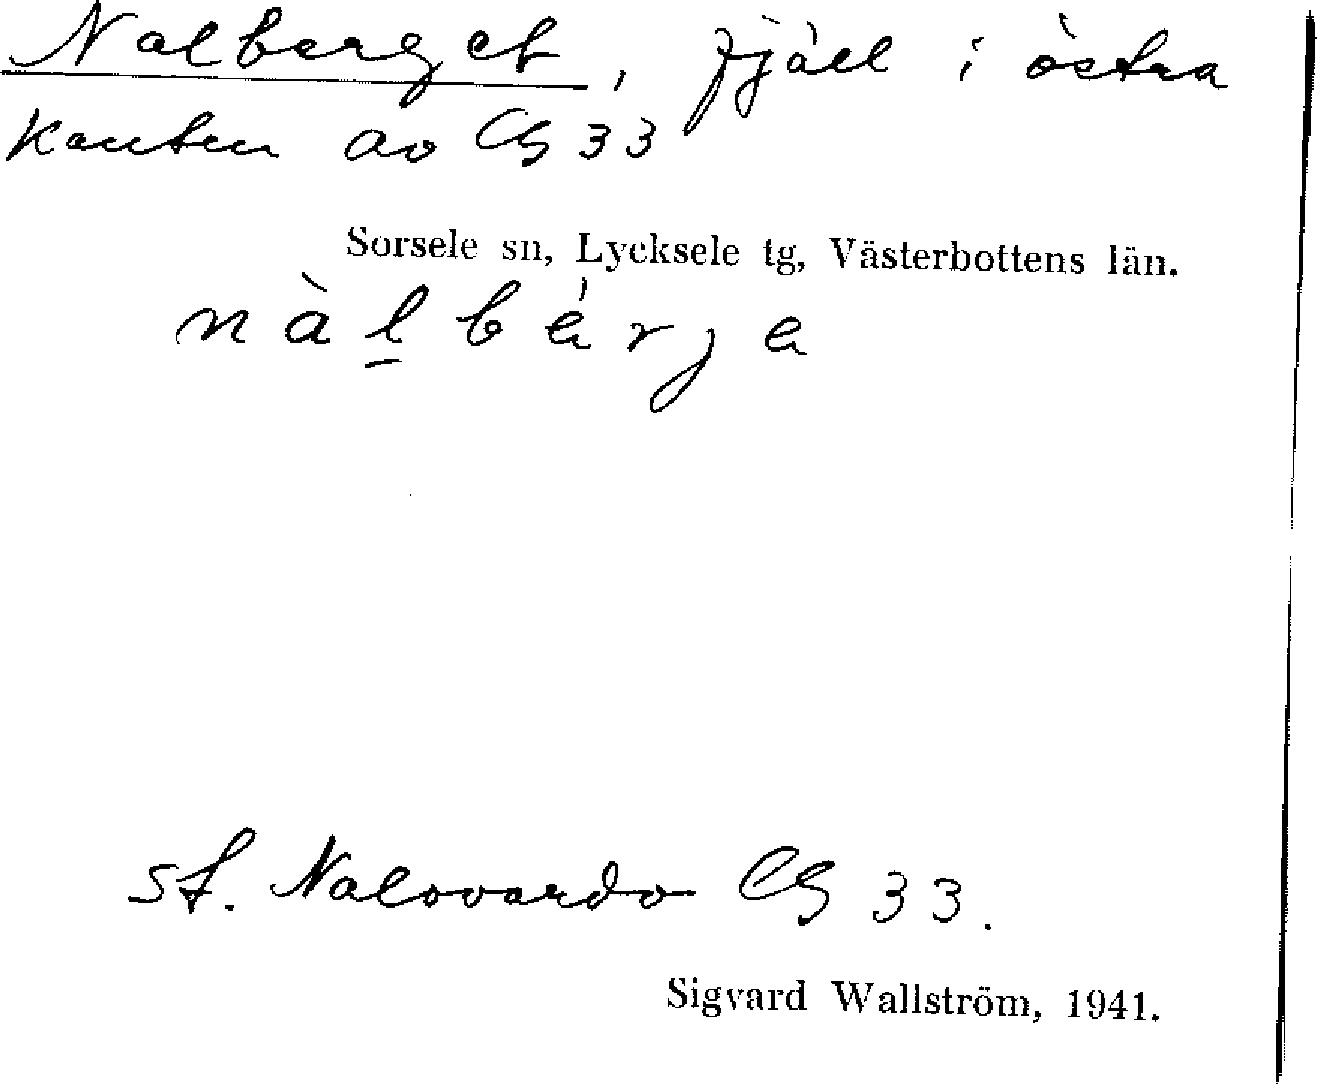 Nalberget, fjäll i östra
kanten av CG 33
Sorsele sn, Lycksele tg, Västerbottens län.
nàl̲bérje
st. Nalovardo CG 33.
Sigvard Wallström, 1941.